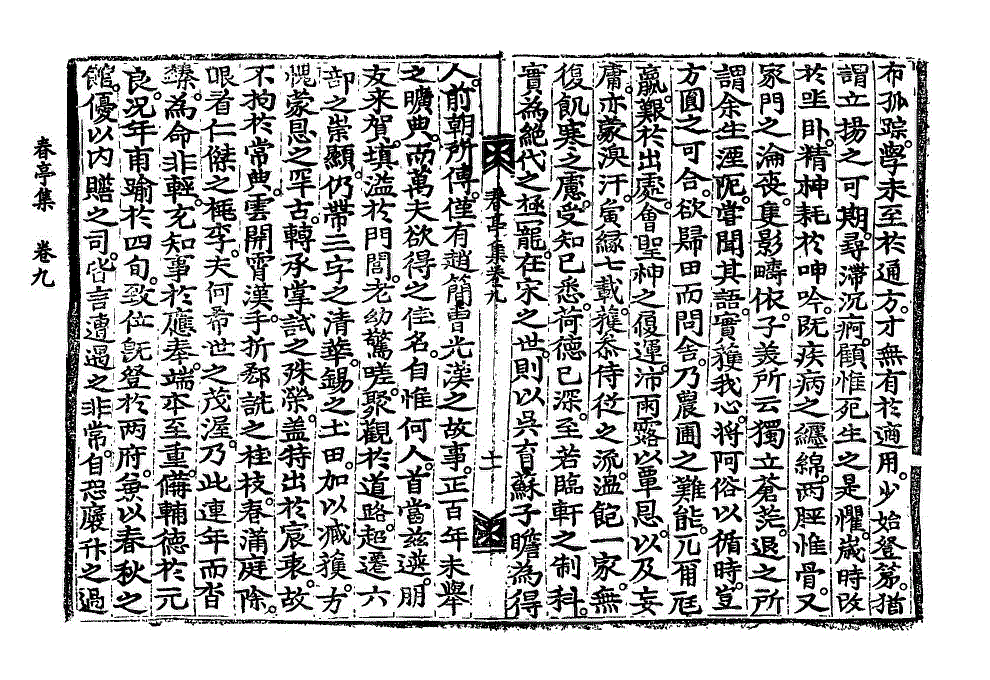 布孤踪學未至於通方才無有於適用少始登第猶
謂立揚之可期尋滯沉痾顧惟死生之是懼歲時改
於坐臥精神耗於呻吟旣疾病之纏綿兩脛惟骨又
家門之淪喪隻影疇依子羨所云獨立蒼茫退之所
謂余生湮阨常聞其語實獲我心將阿俗以循時豈
方圓之可合欲歸田而問舍乃農圃之難能兀爾尫
羸艱於出處會聖神之復運沛雨露以覃恩以及妄
庸亦蒙渙汗夤緣七載獲忝侍從之流溫飽一家無
復飢寒之慮受知已悉荷德已深至若臨軒之制科
實爲絶代之極寵在宋之世則以吳育蘇子瞻爲得
春亭集卷九
十一
人前朝所傳僅有趙簡曹光漢之故事正百年未舉
之曠典而萬夫欲得之佳名自惟何人首當玆選朋
友来賀塡溢於門閭老幼驚嗟聚觀於道路超遷六
部之崇顯仍帶三字之清華錫之土田加以臧獲方
愧蒙恩之罕古轉承掌試之殊榮盖特出於宸衷故
不拘於常典雲開霄漢手折郄詵之桂枝春滿庭除
眼看仁傑之桃李夫何希世之茂渥乃此連年而沓
臻爲命非輕尤知事於應奉端本至重備輔德於元
良况年甫踰於四旬致位旣登於两府兼以春秋之
館優以内贍之司皆言遭遇之非常自恐褒升之過
春亭集 卷九